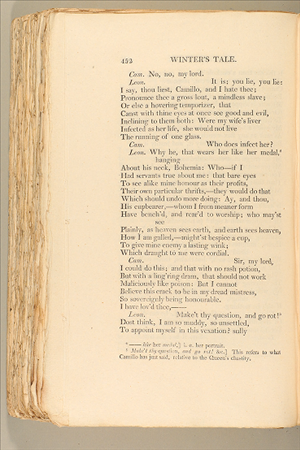 452 WINTER'S TALE.
Cam. No, no, my lord.
Leon. It is; you lie, you lie:
I say, thou liest, Camillo, and I hate thee;
Pronounce thee a gross lout, a mindless slave;
Or else a hovering temporizer, that
Canst with thine eyes at once see good and evil,
Inclining to them both: Were my wife's liver
Infected as her life, she would not live
The running of one glass.
Cam. Who does infect her?
Leon. Why he, that wears her like her medal,¹
hanging
About his neck, Bohemia: Who—if I
Had servants true about me: that bare eyes
To see alike mine honour as their profits,
Their own particular thrifts,—they would do that
Which should undo more doing: Ay, and thou,
His cupbearer,—whom I from meaner form
Have bench'd, and rear'd to worship; who may'st
see
Plainly, as heaven sees earth, and earth sees heaven,
How I am galled,—might'st bespice a cup,
To give mine enemy a lasting wink;
Which draught to me were cordial.
Cam. Sir, my lord,
I could do this; and that with no rash potion,
But with a ling'ring dram, that should not work
Maliciously like poison: But I cannot
Believe this crack to be in my dread mistress,
So sovereignly being honourable.
I have lov'd thee,——
Leon. Make't thy question, and go rot!²
Dost think, I am so muddy, so unsettled,
To appoint myself in this vexation? sully
¹ —— like her medal,] i. e. her portrait.
² Make't thy question, and go rot! &c.] This refers to what
Camillo has just said, relative to the Queen's chastity.